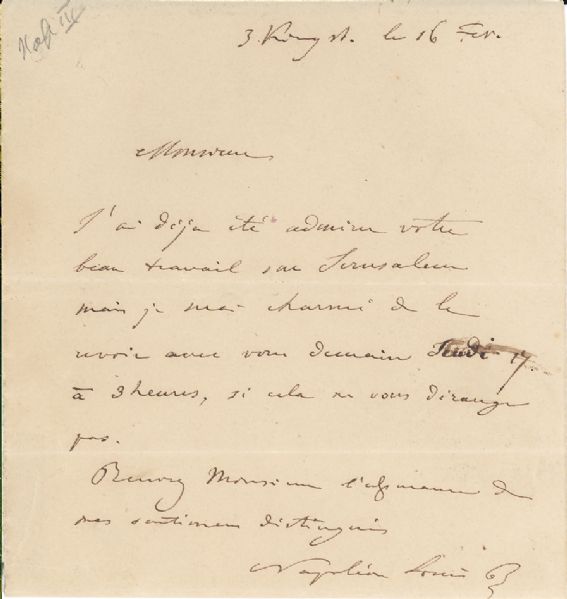 Nap III
3. King st. le 16 Fev.
Monsieur
J'ai déja été admirer votre
beau travail sur Jerusalem
mais je serai charmé de le
revoir avec vous demain Jeudi 17.
à 3 heures, si cela ne vous dérange
pas.
Recevez Monsieur l'assurance de
mes sentimens distingués
Napoléon Louis B